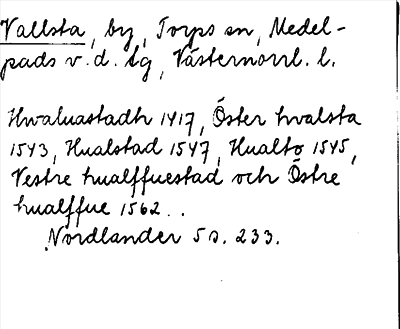 Vallsta, by, Torps sn, Medel-
pads v. d. lg, Västernorrl. l.
Hwaluastadh 1417, Öster hvalsta
1543, Hualstad 1547, Hualto 1545,
Vestre hualffuestad och Östre
hualffue 1562..
Nordlander 5 s. 233.